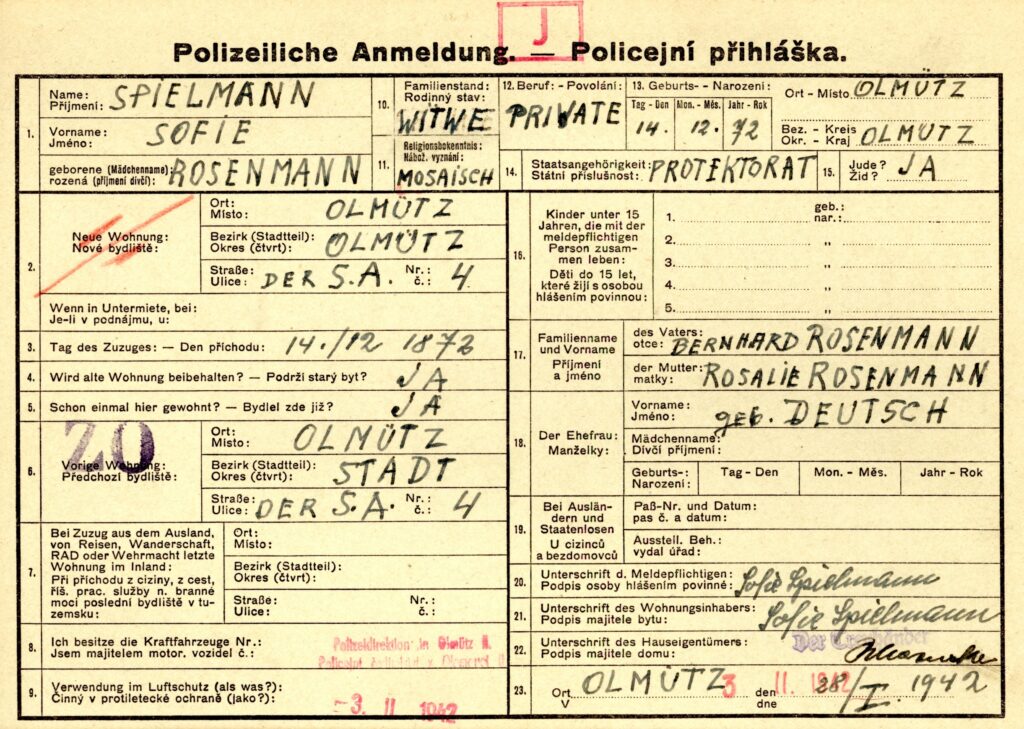 J
Polizeiliche Anmeldung. — Policejní přihláška.
1.
Name: SPIELMANN
Příjmení:
Vorname: SOFIE
Jméno:
geborene (Mädchenname): ROSENMANN
rozená (příjmení dívčí):
10. Familienstand:
Rodinný stav:
WITWE
11. Religionsbekenntnis:
Nábož. vyznání:
MOSAISCH
12. Beruf: - Povolání:
PRIVATE
13. Geburts- - Narození:
Tag - Den Mon. - Měs. Jahr - Rok
14. 12. 72
Ort - Místo OLMÜTZ
Bez. - Kreis
Okr. - Kraj OLMÜTZ
14. Staatsangehörigkeit: PROTEKTORAT
Státní příslušnost:
15. Jude? JA
Žid?
2. Neue Wohnung:
Nové bydliště:
Ort: OLMÜTZ
Místo:
Bezirk (Stadtteil): OLMÜTZ
Okres (čtvrť):
Straße: DER S.A. Nr.: 4
Ulice: č.:
Wenn in Untermiete, bei:
Je-li v podnájmu, u:
3. Tag des Zuzuges: — Den příchodu: 14./12 1872
4. Wird alte Wohnung beibehalten? — Podrží starý byt? JA
5. Schon einmal hier gewohnt? — Bydlel zde již? JA
6. ZO
Vorige Wohnung:
Předchozí bydliště:
Ort: OLMÜTZ
Místo:
Bezirk (Stadtteil): STADT
Okres (čtvrť):
Straße: DER S.A. Nr.: 4
Ulice: č.:
7. Bei Zuzug aus dem Ausland,
von Reisen, Wanderschaft,
RAD oder Wehrmacht letzte
Wohnung im Inland:
Při příchodu z ciziny, z cest,
říš. prac. služby n. branné
moci poslední bydliště v tu-
zemsku:
Ort:
Místo:
Bezirk (Stadtteil):
Okres (čtvrť):
Straße: Nr.:
Ulice: č.:
8. Ich besitze die Kraftfahrzeuge Nr.:
Jsem majitelem motor. vozidel č.:
Polizeidirektion in Olmütz
9. Verwendung im Luftschutz (als was?):
Činný v protiletecké ochraně (jako?):
-3. II 1942
16. Kinder unter 15
Jahren, die mit der
meldepflichtigen
Person zusam-
men leben:
Děti do 15 let,
které žijí s osobou
hlášením povinnou:
1. geb.:
nar.:
2. "
3. "
4. "
5. "
17. Familienname
und Vorname
Příjmení
a jméno
des Vaters: BERNHARD ROSENMANN
otce:
der Mutter: ROSALIE ROSENMANN
matky:
geb. DEUTSCH
18. Der Ehefrau:
Manželky:
Vorname:
Jméno:
Mädchenname:
Dívčí příjmení:
Geburts-: Tag - Den Mon. - Měs. Jahr - Rok
Narození:
19. Bei Auslän-
dern und
Staatenlosen
U cizinců
a bezdomovců
Paß-Nr. und Datum:
pas č. a datum:
Ausstell. Beh.:
vydal úřad:
20. Unterschrift d. Meldepflichtigen: Sofie Spielmann
Podpis osoby hlášením povinné:
21. Unterschrift des Wohnungsinhabers: Sofie Spielmann
Podpis majitele bytu:
22. Unterschrift des Hauseigentümers: Der Treuhänder
Podpis majitele domu
23. Ort OLMÜTZ den 28/I. 1942
V dne
3 II 1942